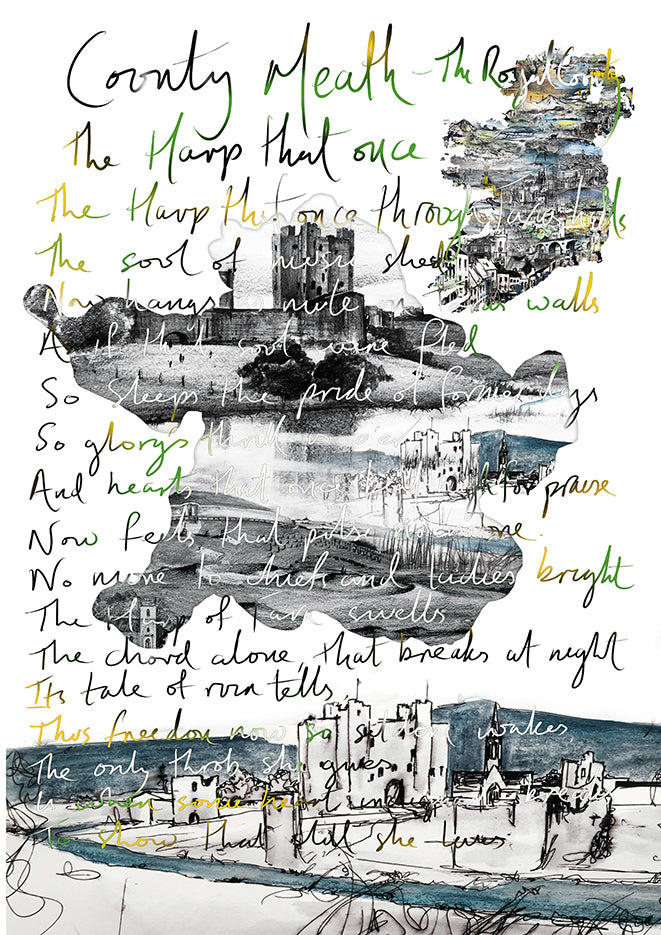 County Meath - The Royal County
The Harp that once
The Harp that once through Tara's halls
The soul of music shed
Now hangs as mute on Tara's walls
As if that soul were fled
So sleeps the pride of former days
So glory's thrill is o'er
And hearts that once beat high for praise
Now feels that pulse no more.
No more to chiefs and ladies bright
The Harp of Tara swells
The chord alone, that breaks at night
Its tale of ruin tells,
Thus freedom now so seldom wakes,
The only throb she gives
Is when some heart indignant breaks
To show that still she lives.